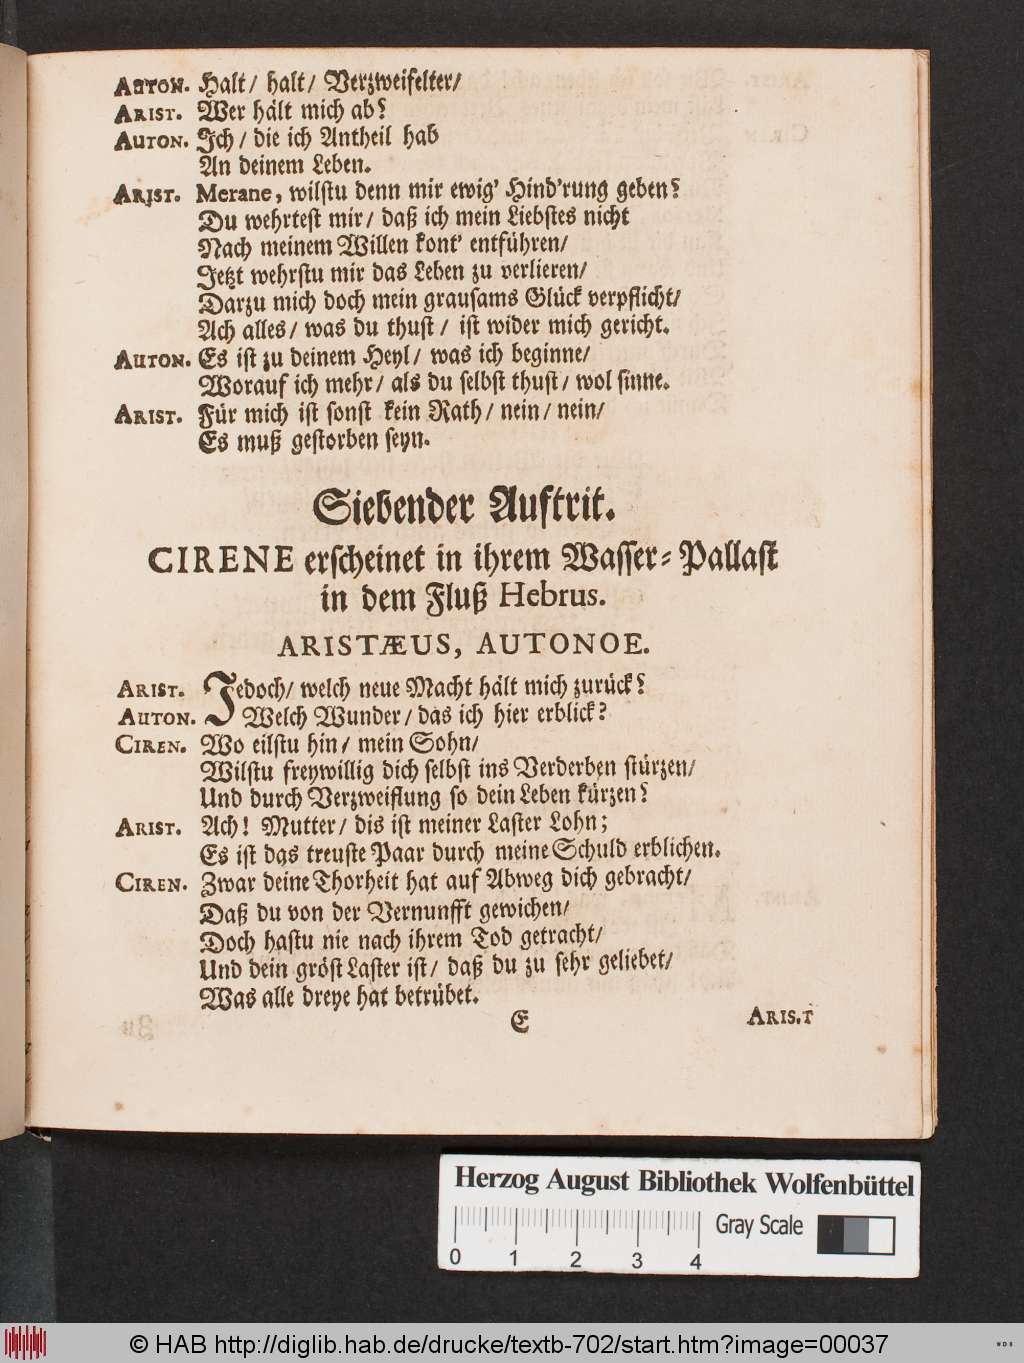 AUTON. Halt/ halt/ Verzweifelter/
ARIST. Wer hält mich ab?
AUTON. Ich/ die ich Antheil hab
An deinem Leben.
ARIST. Merane, wilstu denn mir ewig' Hind'rung geben?
Du wehrtest mir/ daß ich mein Liebstes nicht
Nach meinem Willen kont' entführen/
Jetzt wehrstu mir das Leben zu verlieren/
Darzu mich doch mein grausams Glück verpflicht/
Ach alles/ was du thust/ ist wider mich gericht.
AUTON. Es ist zu deinem Heyl/ was ich beginne/
Worauf ich mehr/ als du selbst thust/ wol sinne.
ARIST. Für mich ist sonst kein Rath/ nein/ nein/
Es muß gestorben seyn.
Siebender Auftrit.
CIRENE erscheinet in ihrem Wasser-Pallast
in dem Fluß Hebrus.
ARISTÆUS, AUTONOE.
ARIST. Jedoch/ welch neue Macht hält mich zurück?
AUTON. Welch Wunder/ das ich hier erblick?
CIREN. Wo eilstu hin/ mein Sohn/
Wilstu freywillig dich selbst ins Verderben stürzen/
Und durch Verzweiflung so dein Leben kürzen?
ARIST. Ach! Mutter/ dis ist meiner Laster Lohn;
Es ist das treuste Paar durch meine Schuld erblichen.
CIREN. Zwar deine Thorheit hat auf Abweg dich gebracht/
Daß du von der Vernunfft gewichen/
Doch hastu nie nach ihrem Tod getracht/
Und dein gröst Laster ist/ daß du zu sehr geliebet/
Was alle dreye hat betrübet.
E ARIS.T
Herzog August Bibliothek Wolfenbüttel
Gray Scale
0 1 2 3 4
© HAB http://diglib.hab.de/drucke/textb-702/start.htm?image=00037